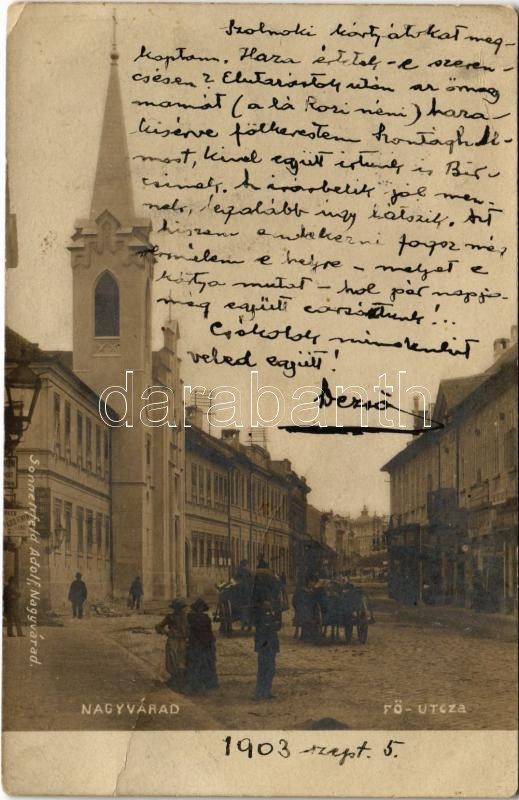 Szolnoki kártyátokat meg-
kaptam. Haza értetek-e szeren-
csésen? Elutazástok után az őmag
mamát (a lá Rozi néni) haza
kisérve fölkerestem Szontágh Ál-
most, kivel együtt irtunk is Bir-
csinek. Az jól men-
nek, legalább úgy látszik. Azt
hiszem emlékezni fogsz még
e helyre – melyet e
kártya mutat – hol pár napja
még együtt !..
Csókollak mindenkit
veled együtt!
Dezső
darabanth
Sonnenfeld Adolf, Nagyvárad.
NAGYVÁRAD
FŐ-UTCZA
1903 szept. 5.